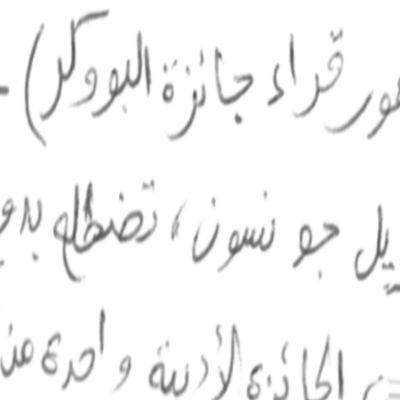 قراء جائزة البوكر) -
جونسون، تضطلع
الجائزة الأدبية واحدة من